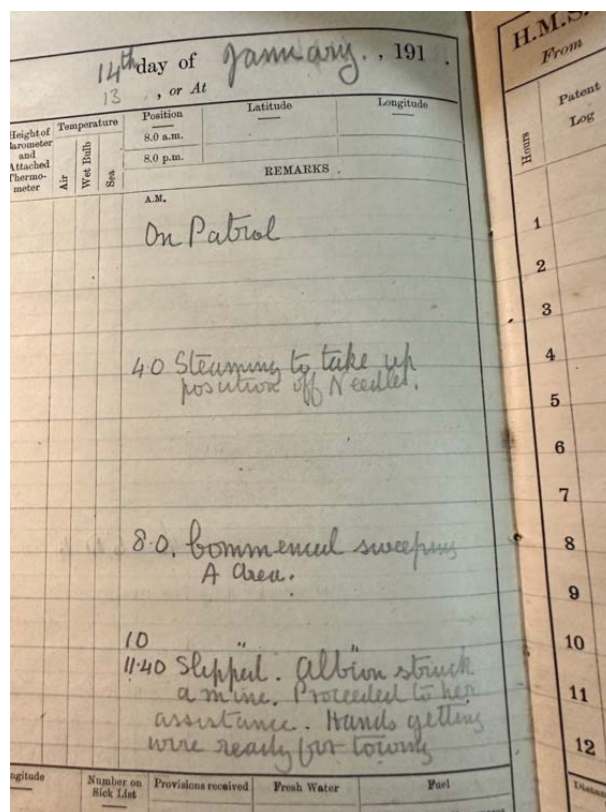 14th day of January., 191 .
13 , or At
Height of Barometer and Attached Thermo-meter
Temperature
Air
Wet Bulb
Sea
Position
Latitude
Longitude
8.0 a.m.
8.0 p.m.
REMARKS .
A.M.
On Patrol
4.0 Steaming to take up
position off Needles.
8.0. Commenced sweeping
A area.
10 " "
11.40 Slipped. Albion struck
a mine. Proceeded to her
assistance. Hands getting
wire ready for towing
Number on Sick List
Provisions received
Fresh Water
Fuel
H.M.S.
From
Hours
Patent
Log
1
2
3
4
5
6
7
8
9
10
11
12